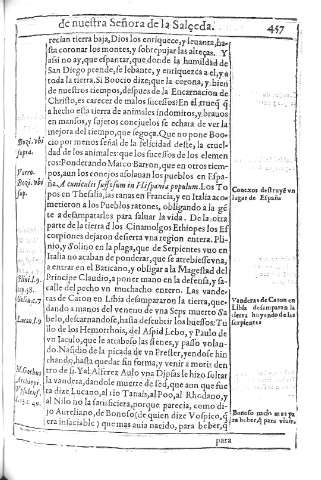 de nuestra Señora de la Salceda. 457
recian tierra baja, Dios los enriquece, y leuanta, ha-
sta coronar los montes, y sobrepujar las altezas. Y
assi no ay, que espantar, que donde la humildad de
San Diego prende, se lebante, y enriquezca a el, y a
toda la tierra. Si Boocio dize; que la corona, y bien
de nuestros tiempos, despues de la Encarnacion de
Christo, es carecer de malos sucessos: En el trueq̃ q̃
a hecho esta tierra de animales indomitos, y brauos
en mansos, y sajetos conejuelos se echara de ver la
mejora del tiempo, que segoça. Que no pone Boo-
cio por menos señal de la felicidad deste, la cruel-
dad de los animales: que los sucessos de los elemen-
tos: Ponderando Marco Barron, que en otros tiem-
pos, aun los conejos assolauan los pueblos en Espa-
ña. A cuniculis suffossum in Hispania populum. Los To
pos en Thesalia, las ranas en Francia, y en Italia aco
metieron a los Pueblos ratones, obligando a la gẽ
te a desampatarles para saluar la vida. De la otra
parte de la tierra d los Cinamolgos Ethiopes los Es
corpiones dejaron desierta vna region entera. Pli-
nio, y Solino en la plaga, que de Serpientes vuo en
Italia no acaban de ponderar, que se atrebiesse vna,
a entrar en el Baticano, y obligar a la Magestad del
Principe Claudio, a poner mano en la defensa, y sa-
calle del pecho vn muchacho entero. Las vande-
ras de Caton en Libia desampararon la tierra, que-
dando a manos del veneno de vna Seps muerto Sa
belo, descarnandose, hasta descubrir los huessos: Tu
llo de los Hemorrhois, del Aspid Lebo, y Paulo de
vn Jaculo, que le atrabeso las sienes, y passo volan-
do. Nasidio de la picada de vn Prester, yendose hin
chando, hasta quedar sin forma, y venir a morir den
tro de si. Y al Alferez Aulo vna Dipsas le hizo soltar
la vandera, dandole muerte de sed, que aun que fue
ra dize Lucano, al rio Tanais, al Poo, al Rhodano, y
al Nilo no la satisfaciera, porque parecia, como di-
jo Aureliano, de Bonoso (de quien dize Vospico, q̃
era insaciable) que mas auia nacido, para beber, q̃
para
Bozi. vbi
supra.
Varro.
Bozi. vbi
sup.
Plini. l. 9.
Lucan. l. 9
Conexos destruyẽ vn
lugar de España
Vanderas de Caton en
Libia desampara la
tierra huyendo de las
serpientes